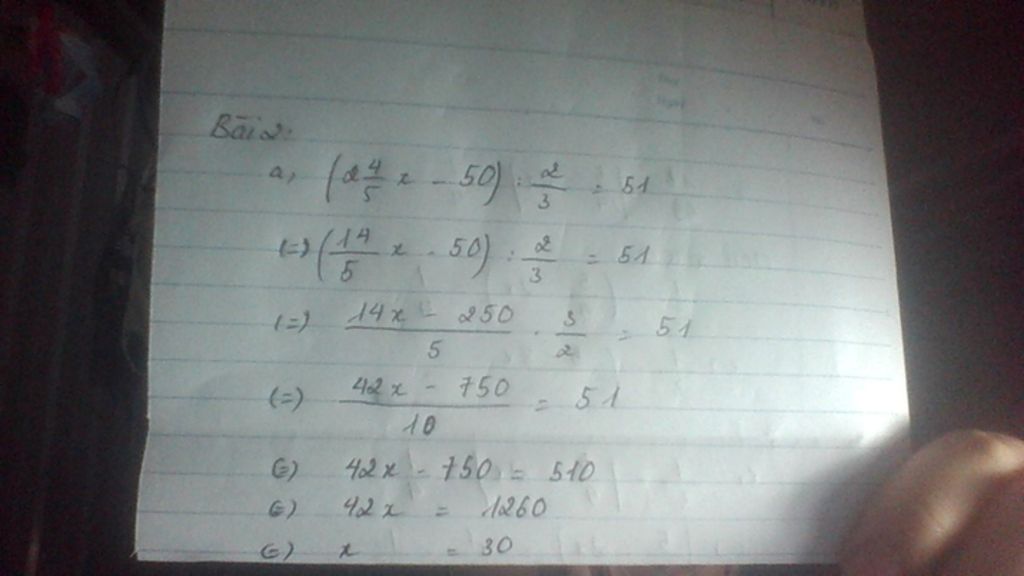 Bài 2:
a, (2 4/5 x - 50) : 2/3 = 51
(=) (14/5 x - 50) : 2/3 = 51
(=) (14x - 250)/5 . 3/2 = 51
(=) (42x - 750)/10 = 51
(=) 42x - 750 = 510
(=) 42x = 1260
(=) x = 30